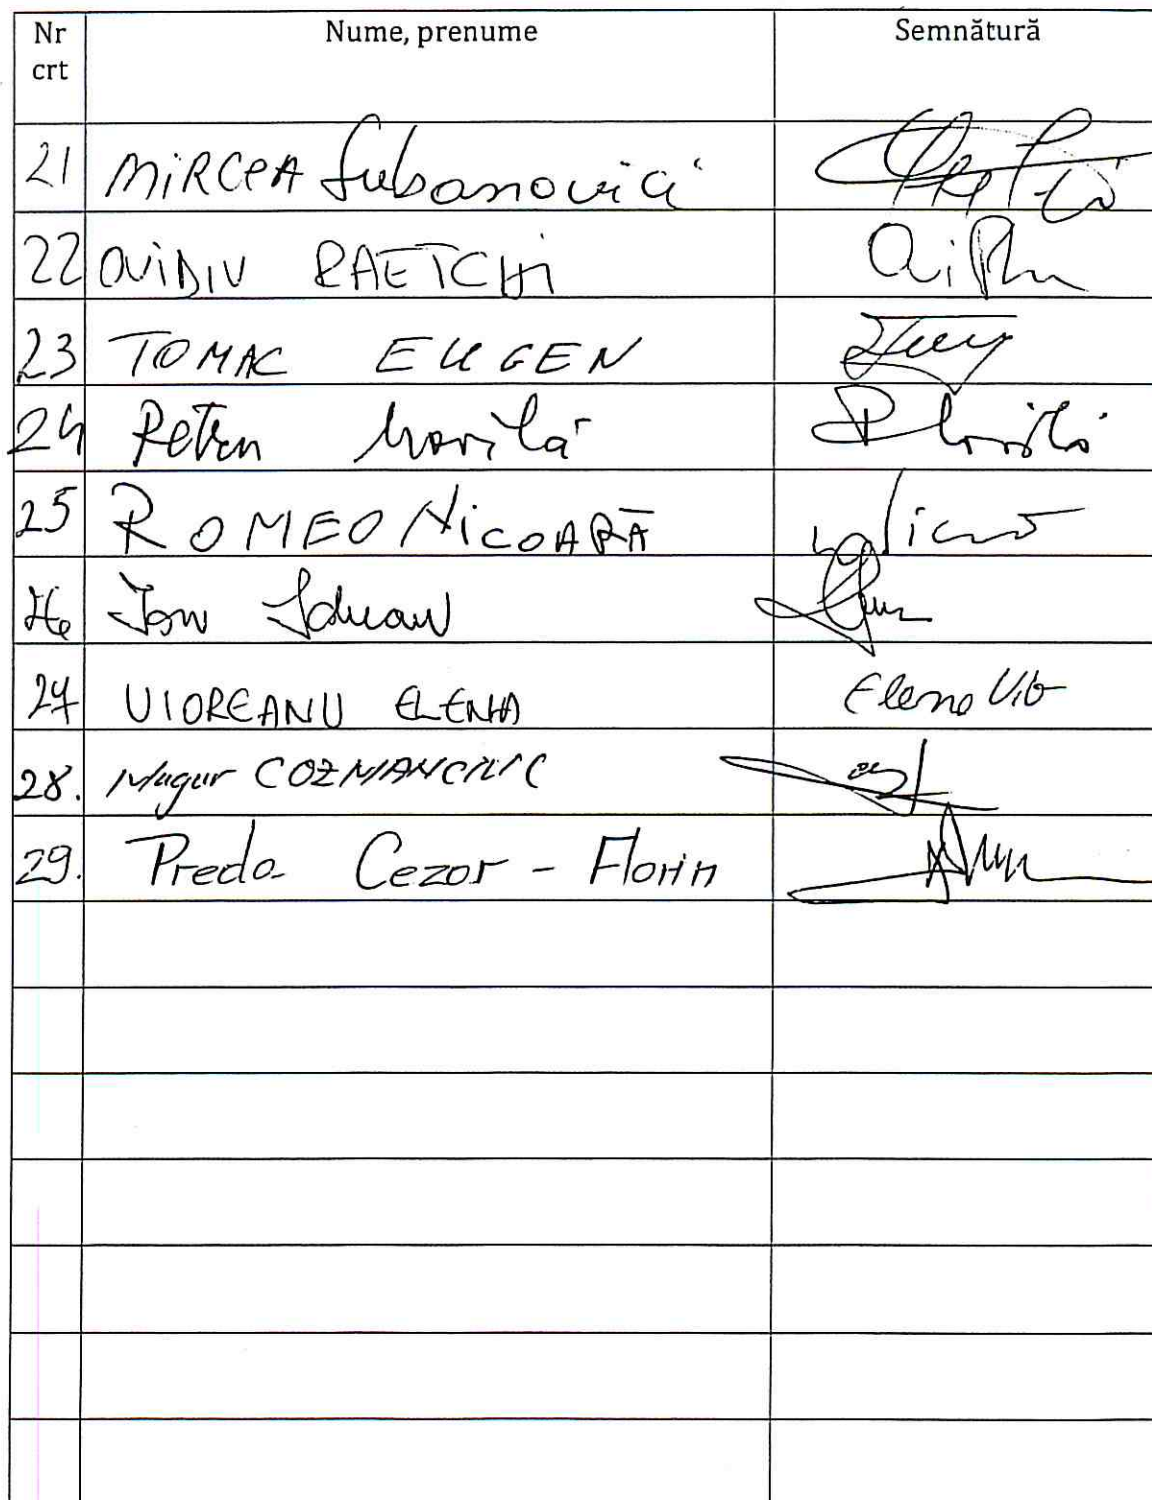 Nr crt Nume, prenume Semnătură
21 MIRCEA Lubanovici
22 OVIDIU RAETCHI
23 TOMAC EUGEN
24 Petru Movilă
25 ROMEO NICOARĂ
26 Ion
27 VIOREANU ELENA Elena Vio
28. Mugur COZMANCIUC
29. Preda Cezar - Florin